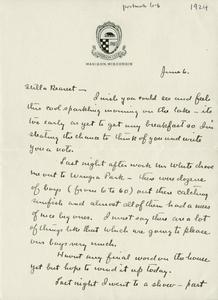 postmark 6-6 1924
MADISON, WISCONSIN
June 6.
Stilla Dearest —
I wish you could see and feel
this cool sparkling morning on the lake — it's
too early as yet to get any breakfast so I'm
stealing the chance to think of you and write
you a note.
Last night after work Mr White drove
me out to Wingra Park — there were dozens
of boys (from 6 to 60) out there catching
sunfish and almost all of them had a mess
of nice big ones. I must say there are a lot
of things like that which are going to please
our boys very much.
Haven't any final word on the house
yet but hope to wind it up today.
Last night I went to a show — part